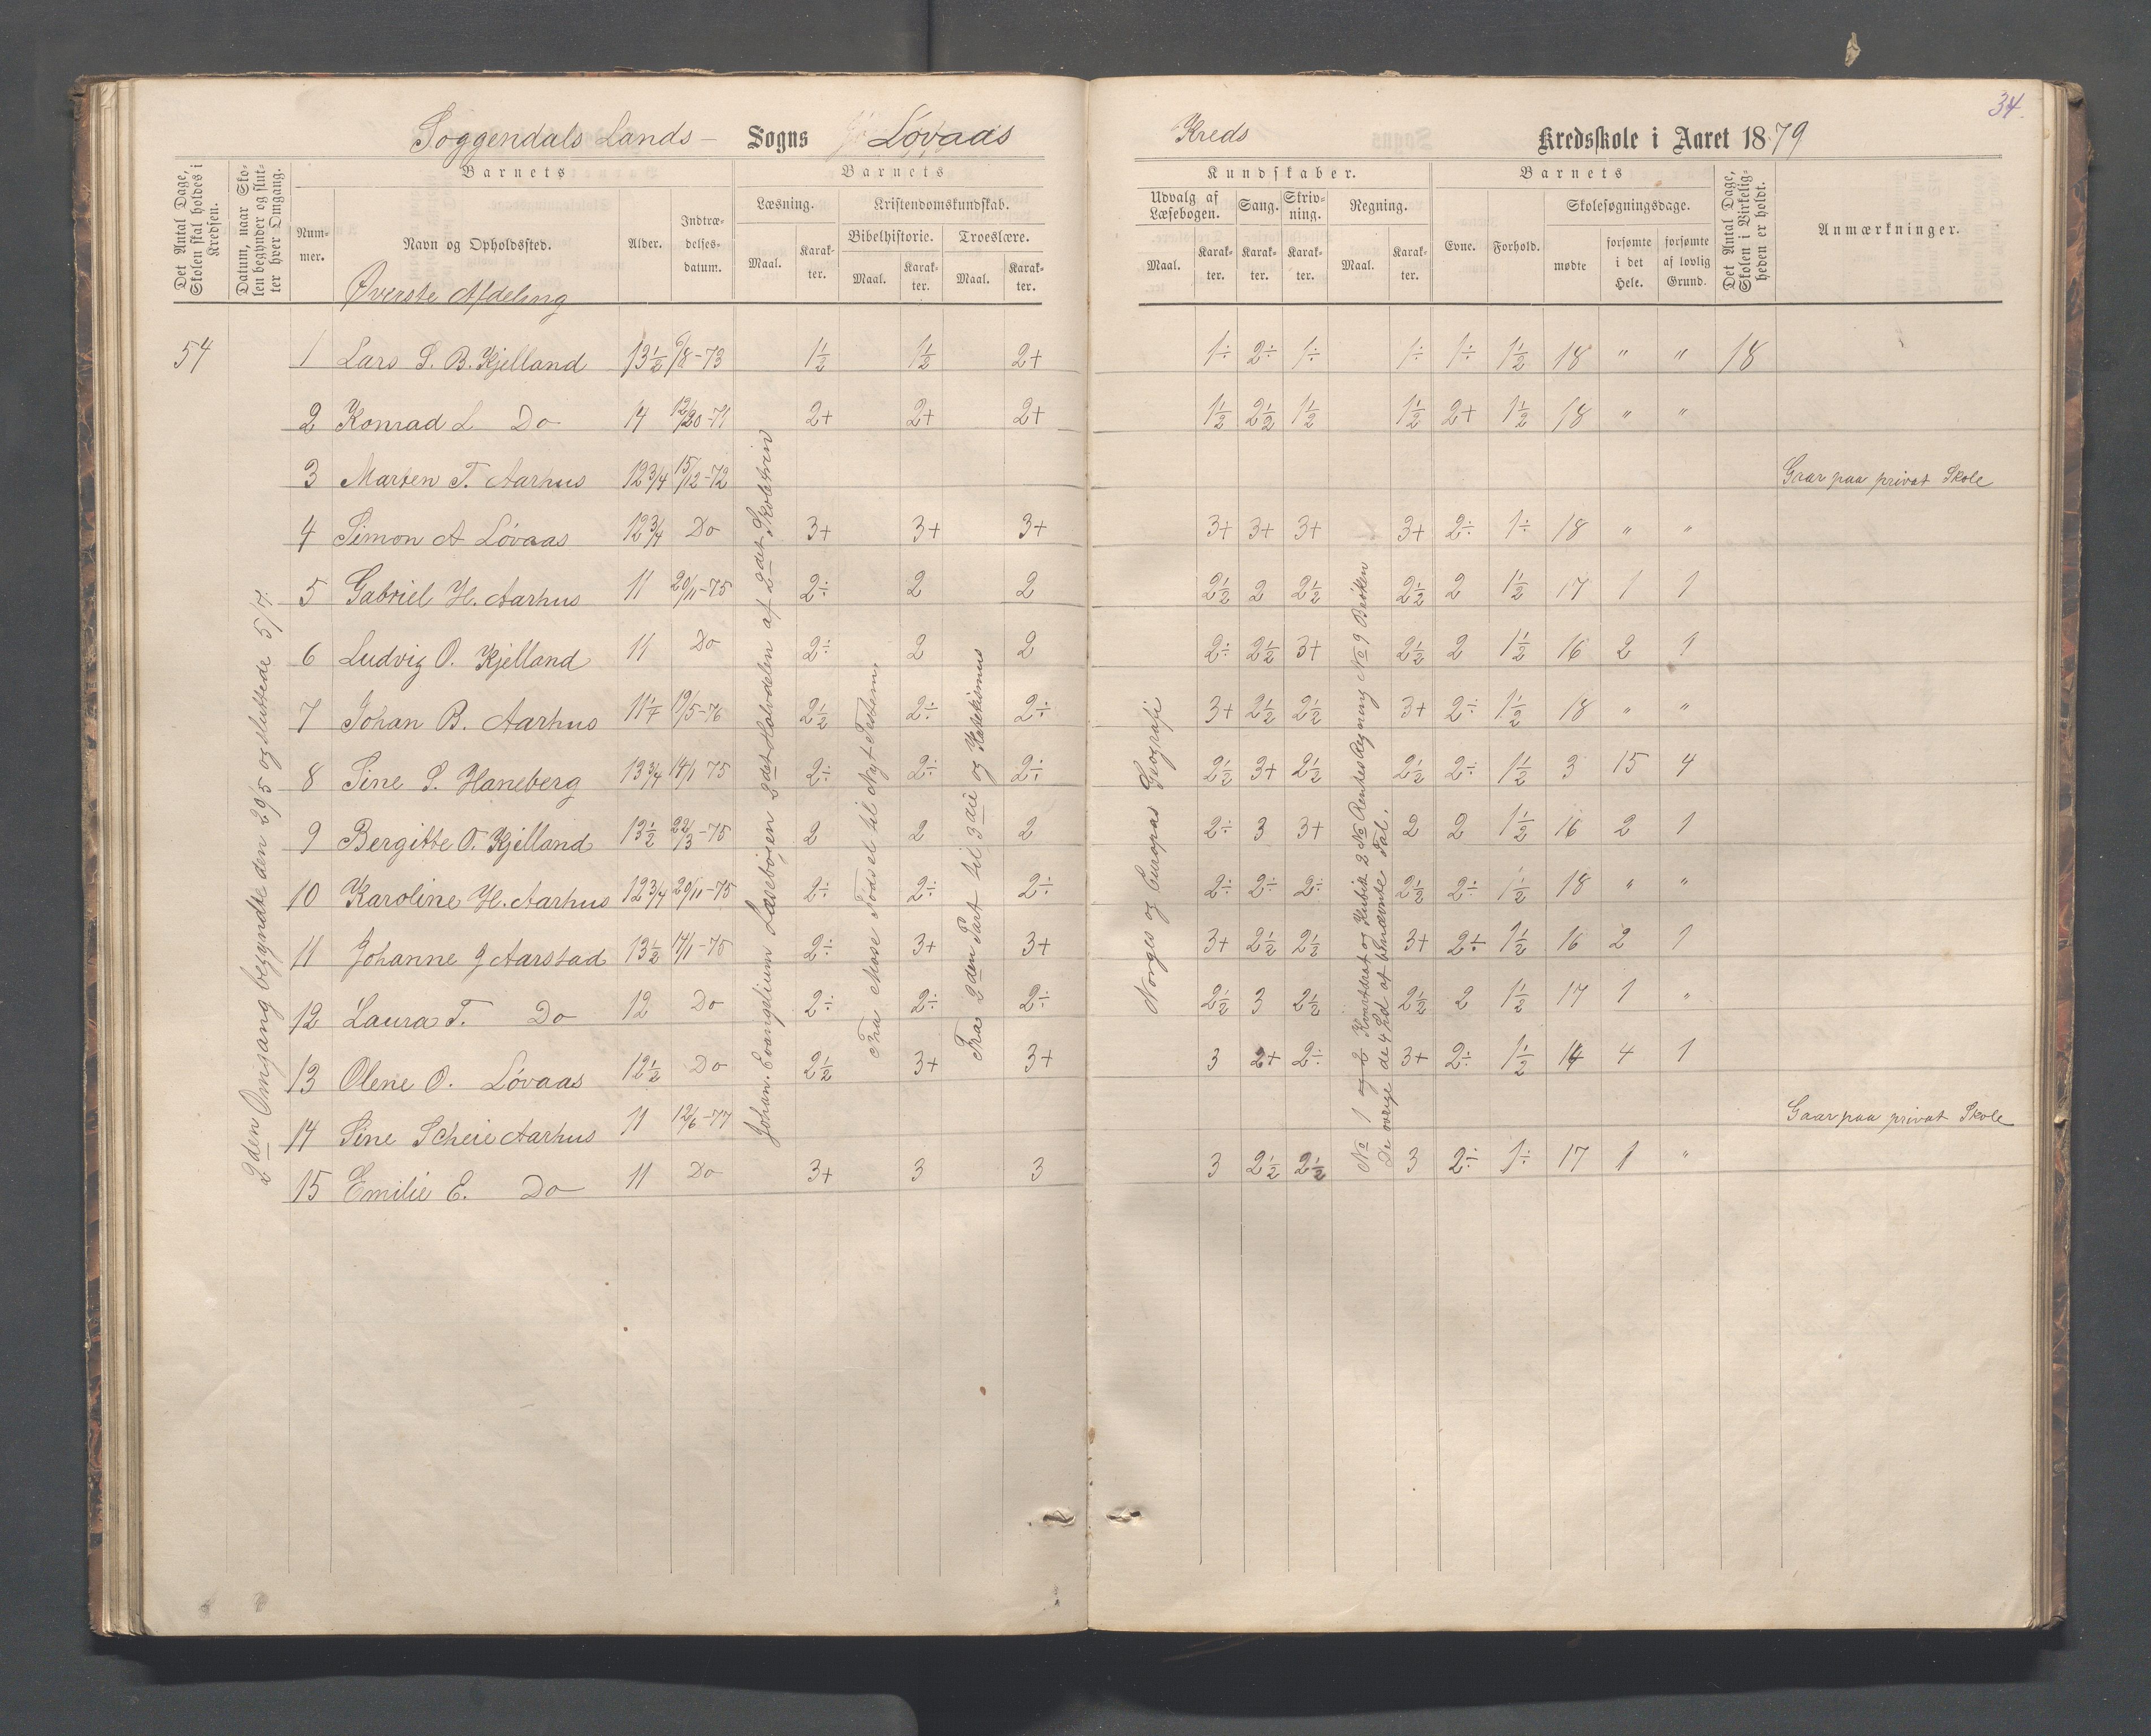 34.
Soggendals Lands- Sogns Lövaas Kreds Kredsskole i Aaret 1879
Det Antal Dage, Skolen skal holdes i Kredsen.
Datum, naar Skolen begynder og slutter hver Omgang.
Barnets
Nummer.
Navn og Opholdssted.
Alder.
Indtrædelsesdatum.
Barnets
Læsning.
Maal. Karakter.
Kristendomskundskab.
Bibelhistorie. Troeslære.
Maal. Karakter. Maal. Karakter.
Kundskaber.
Udvalg af Læsebogen. Sang. Skrivning. Regning.
Maal. Karakter. Karakter. Karakter. Maal. Karakter.
Barnets
Evne. Forhold. Skolesøgningsdage.
mødte forsømte i det Hele. forsømte af lovlig Grund.
Det Antal Dage, Skolen i Virkeligheden er holdt.
Anmærkninger.
Øverste Afdeling
54 1 Lars S. B. Kjelland 13½ 6/8-73 1½ 1½ 2+ 1÷ 2÷ 1÷ 1÷ 1÷ 1½ 18 " " 18
2 Konrad L Do 14 2+ 2+ 2+ 1½ 2½ 1½ 1½ 2+ 1½ 18 " "
3 Marten T. Aarhus 12 3/4 15/12-72 Gaar paa privat Skole
4 Simon A Lövaas 12 3/4 Do 3+ 3+ 3+ 3+ 3+ 3+ 3+ 2÷ 1÷ 18 " "
5 Gabriel H. Aarhus 11 20/11-75 2÷ 2 2 2½ 2 2½ 2½ 2 1½ 17 1 1
6 Ludvig O. Kjelland 11 Do 2÷ 2 2 2÷ 2½ 3+ 2½ 2 1½ 16 2 1
7 Johan B. Aarhus 19/5-76 2½ 2÷ 2÷ 3+ 2½ 2½ 3+ 2÷ 1½ 18 " "
8 Sine S. Haneberg 13 3/4 14/1 75 2÷ 2÷ 2÷ 2½ 3+ 2½ 2½ 2÷ 1½ 3 15 4
9 Bergitte O. Kjelland 13½ 22/3-75 2 2 2 2÷ 3 3+ 2 2 1½ 16 2 1
10 Karoline H. Aarhus 12 3/4 20/11-75 2÷ 2÷ 2÷ 2÷ 2÷ 2÷ 2½ 2÷ 1½ 18 " "
11 Johanne J Aarstad 13½ 14/1-75 2÷ 3+ 3+ 3+ 2½ 2½ 3+ 2÷ 1½ 16 2 1
12 Laura T. Do 12 Do 2÷ 2÷ 2÷ 2½ 3 2½ 2½ 2 1½ 17 1 "
13 Olene O. Lövaas 12½ Do 2½ 3+ 3+ 3 2+ 2÷ 3+ 2÷ 1½ 14 4 1
14 Sine Scheie Aarhus 11 12/6-77 Gaar paa privat Skole
15 Emilie E. Do 11 Do 3+ 3 3 3 2½ 2½ 3 2÷ 1÷ 17 1 "
2den Omgang begyndte den 29/5 og sluttede 5/7.
Johan. Evangelium Læsebogen 2det Halvdelen af 2det Skoletrin
Fra Mose Födsel til Nyt Testam.
Fra 2den Part til 3die og Katekismus
Norges og Europas Geografi
No 1 og 2 Kvartdrat og Kubik 2 No Rentes Regning No 9 Bröken
De övrige de 4 Sol. af benævnte Tal.